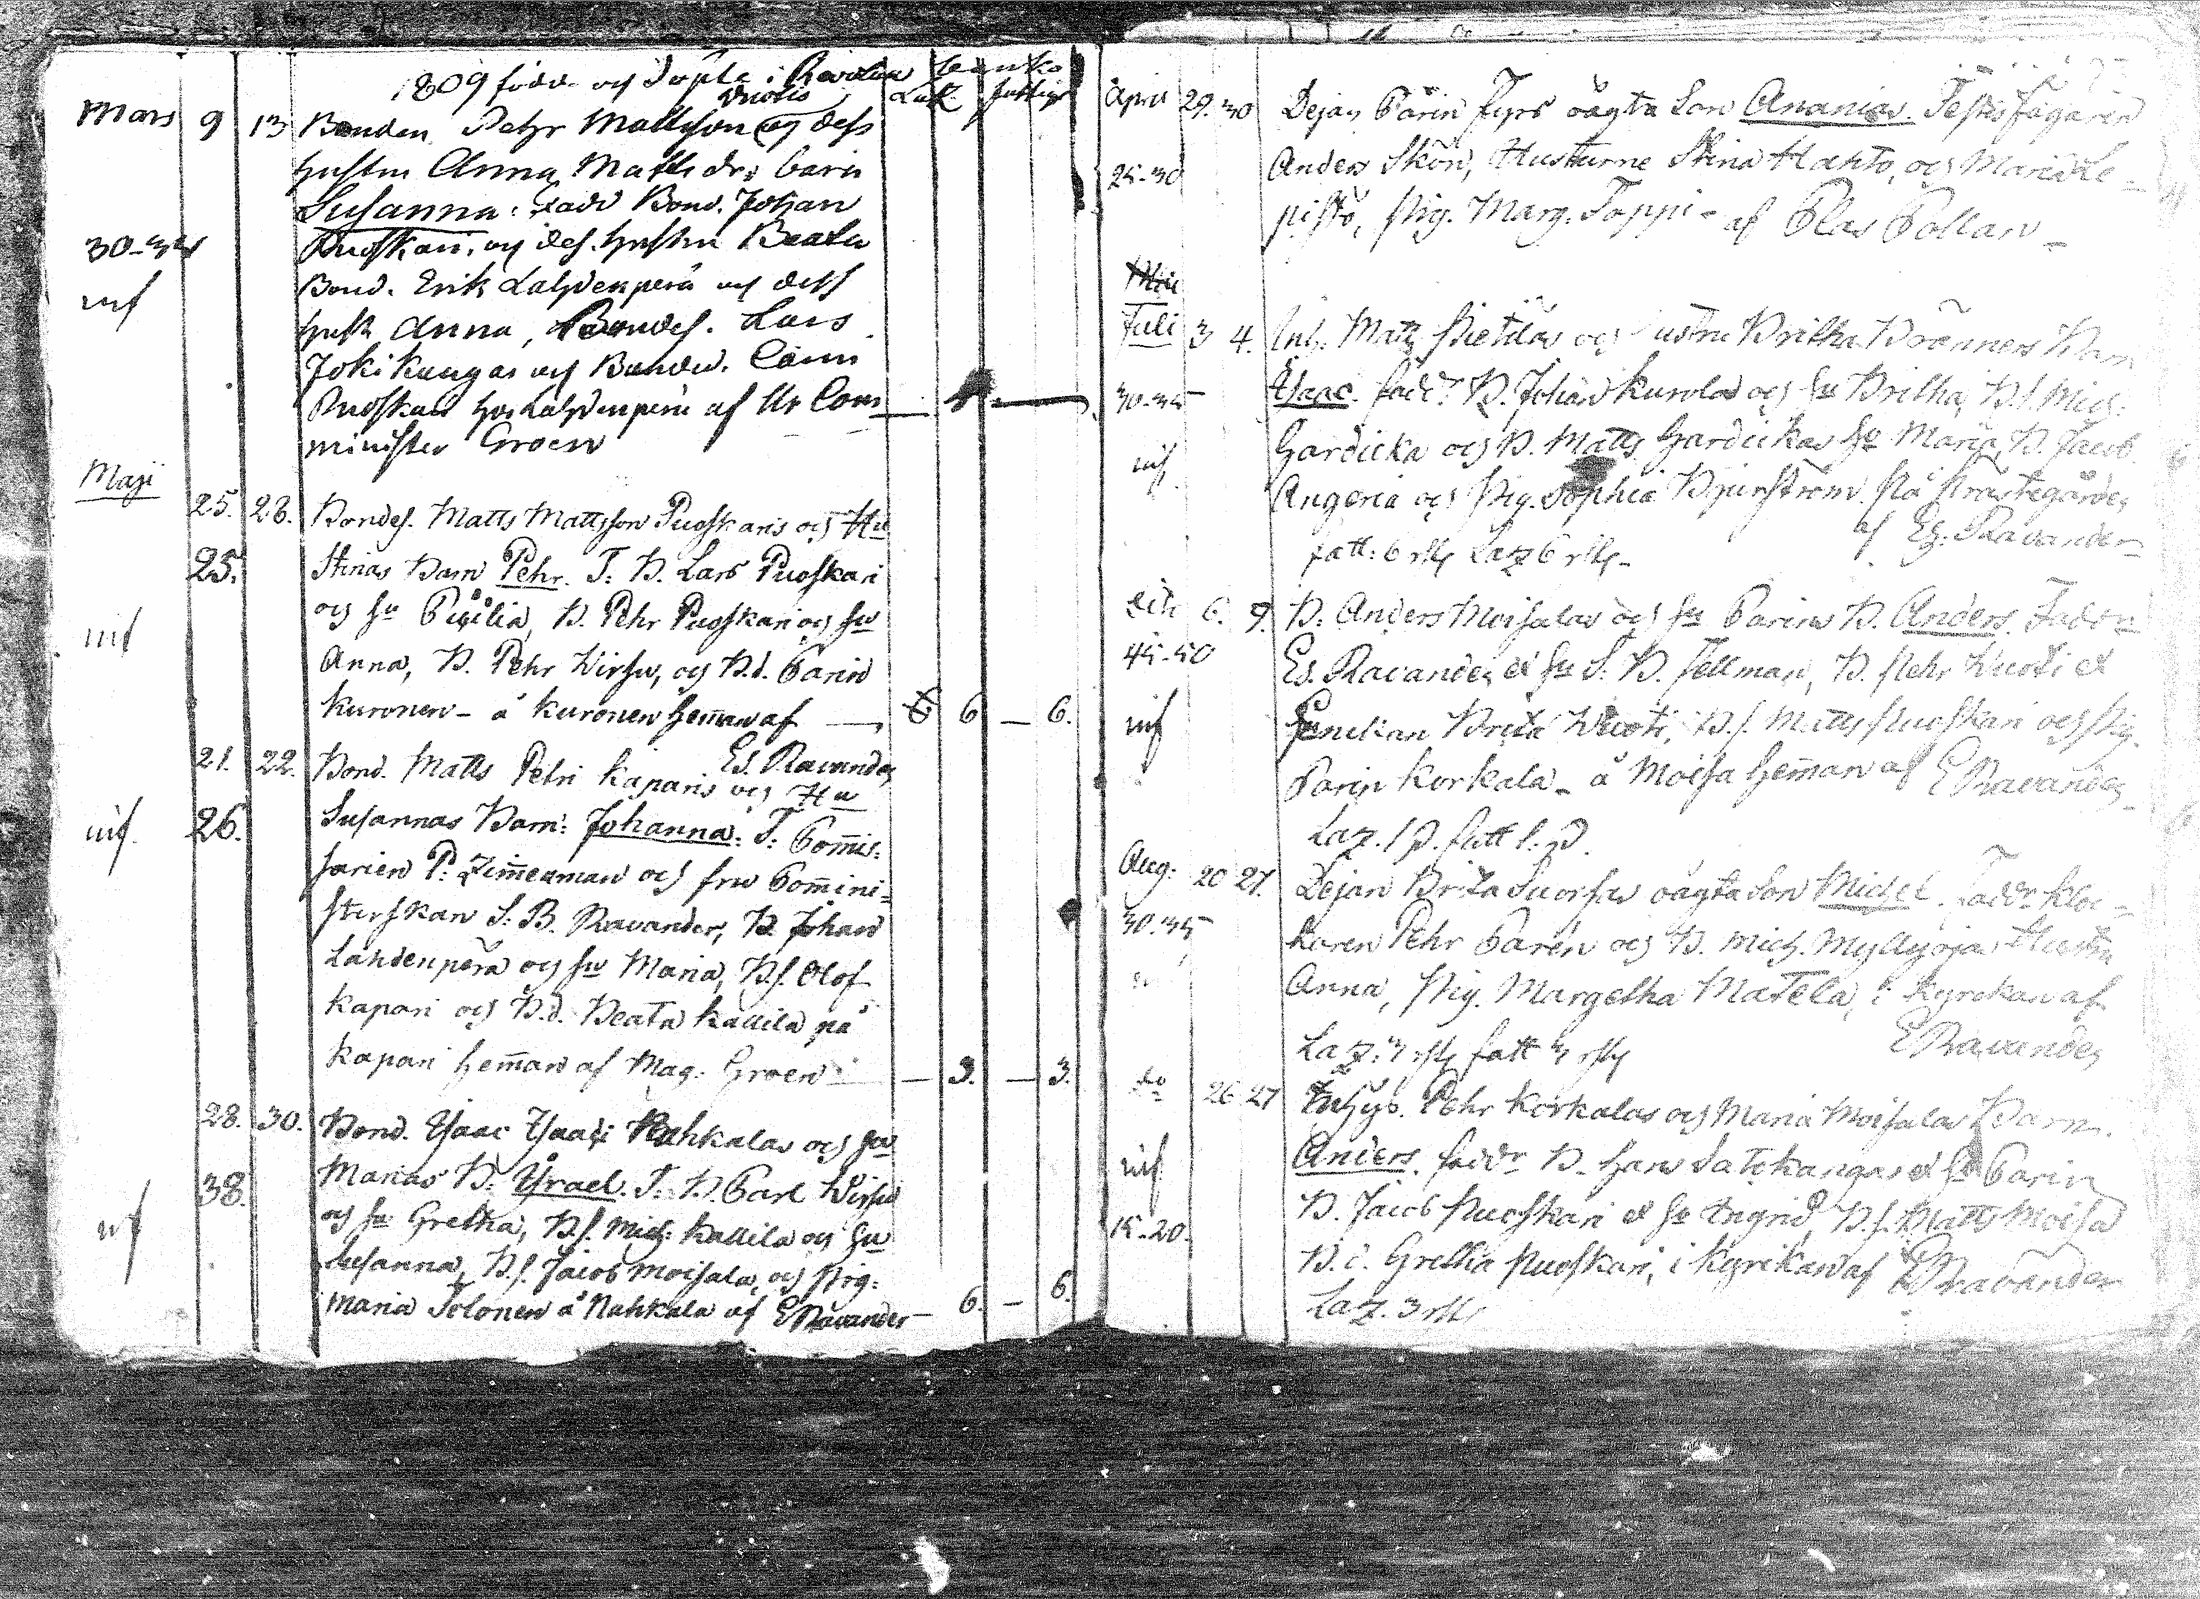 1809 född. och döpte i Revolax banko
Laz. fattige
Vuotis
Mars 9 13 Bonden Pehr Mattsson och dess
hustru Anna Matts dr: barn
Susanna: Fadd Bond. Johan
30-35 Ruoskari, och des. hustru Beata
inf Bond. Erik Lahdenperä och dess
hust Anna, Bondes. Lars
Jokikangas och Bonded. Carin
Ruoskari hos Lahdenperä af Hr Com
minister Groen
Maji
25. 28. Bondes. Matts Mattsson Puoskaris och Hu
25. Stinas Barn Pehr. T: B. Lars Puoskari
och hu Cicilia, B. Pehr Puoskari och hu
inf Anna, B. Pehr Wirsu, och B.d. Carin
Kuronen - å Kuronen hemman af 6 6 - 6.
Es. Ravander
21. 22. Bond. Matts Petri Kaparis och Hu
inf. 26. Susannas Barn: Johanna: T: Commis:
sarien P: Zimmerman och fru Commini=
sterskan S: B. Ravander, B. Johan
Lahdenperä och hu Maria, B.s. Olof
Kapari och B.d. Beata Kallila på
Kapari hemman af Mag: Groen - 3. - 3.
28. 30. Bond. Isaac Isaaci Nahkalas och hu
38. Marias B. Israel. T: B. Carl Wirsu
inf och hu Gretha, B.s. Mich: Kallila och hu
Susanna, B.s. Jacob Moisala, och Pig:
Maria Tolonen å Nahkala af E Ravander - 6. - 6.
April 29. 30 Dejan Carin Fyrs oägta Son Ananias. Testes Fogaren
25-30 Anders Skön, Hustrurne Stina Hahto, och Maria Le=
pistö, Pig. Marg. Toppi - af Clas Collan -
Juli 3 4. Inh: Matts Pietilas och hustru Britha Brönners Barn
30-35 Isaac. fadd: B. Johan Kurolas och hu Britha, B.s. Mich:
inf Gardicka och B. Matts Gardickas hu Maria, B. Jacob
Angeria och Pig. Sophia Björström. På Prästegården
af Es: Ravander
fatt: 6 rsk Laz 6 rsk -
dito 6. 9. B. Anders Moisalas och hu Carins B. Anders. Fadd:
45-50 Es. Ravander et hu S: B. Fellman, B. Pehr Wuoti et
inf Britha Wuoti, B.s. Matts Puoskari och Pig.
Carin Korkala - å Moisa hemman af E Ravander
Laz. 1 p. fatt 1. p.
Aug: 20 27. Dejan Brita Suorsas oägta Son Michel. Fadd: Kloc=
30.35 karen Pehr Caren och B. Mich. Myllyojas Hustru
Anna, Pig. Margetha Matela, i Kyrckan af
E Ravander
Laz: 3 rsk fatt 3 rsk
do 26 27 Inhys. Pehr Korkalas och Maria Moisalas Barn.
inf Anders. faddr B. Hans Satokangas et hu Carin
15-20. B. Jacob Puoskari et hu Ingrid, B.s. Matts Moisa
B. d. Gretha Puoskari, i Kyrckan af E Ravander
Laz. 3 rsk